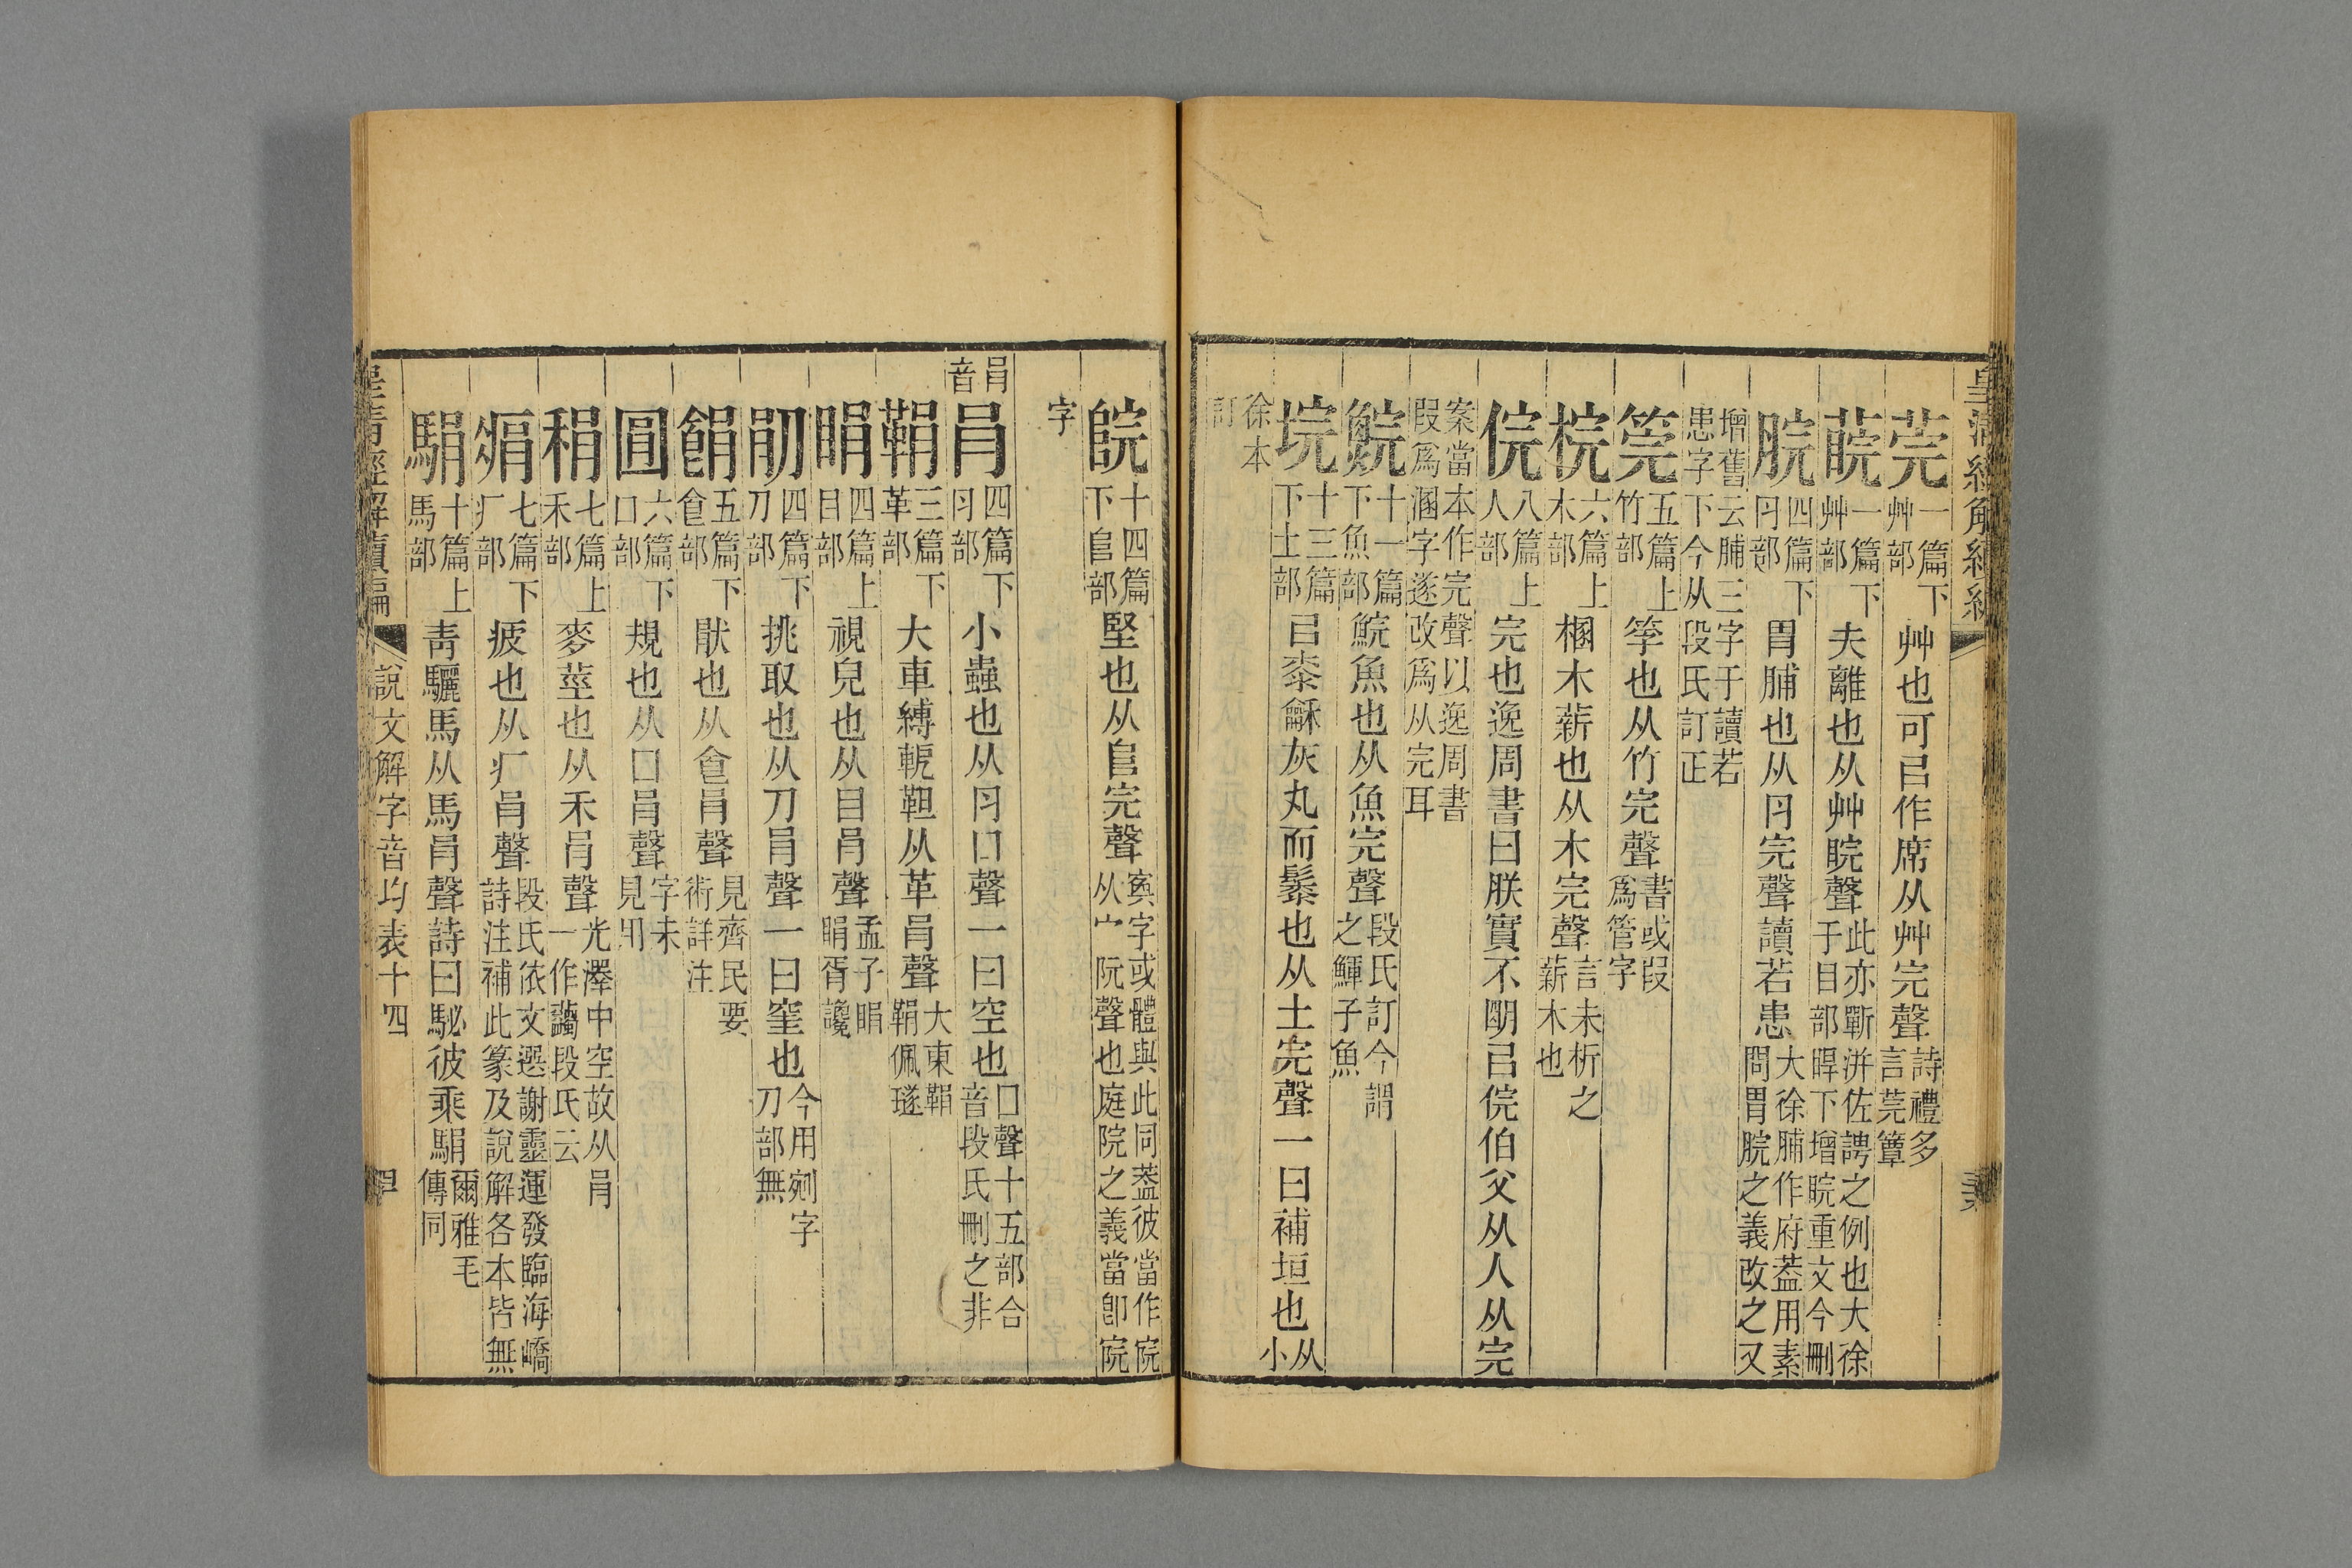 皇清經解續編
莞一篇下艸部艸也可㠯作席从艸完聲詩禮多言莞簟
䓴一篇下艸部夫離也从艸睆聲此亦斸洴佐䛿之例也大徐于目部睅下增睆重文今刪
脘四篇下⺼部胃脯也从⺼完聲讀若患大徐脯作府葢用素問胃脘之義改之又
增舊云脯三字于讀若患字下今从段氏訂正
筦五篇上竹部筟也从竹完聲書或叚爲管字
梡六篇上木部梱木薪也从木完聲言未析之薪木也
俒八篇上人部完也逸周書曰朕實不朙㠯俒伯父从人从完
案當本作完聲以逸周書叚爲溷字遂改爲从完耳
鯇十一篇下魚部鯇魚也从魚完聲段氏訂今謂之鯶子魚
垸十三篇下土部㠯桼龢灰丸而髹也从土完聲一曰補垣也从小
徐本訂
院十四篇下𨸏部堅也从𨸏完聲寏字或體與此同葢彼當作㝩从宀阮聲也庭院之義當卽㝩
字
肙音
肙四篇下⺼部小蟲也从⺼口聲一曰空也口聲十五部合音段氏刪之非
鞙三篇下革部大車縛軶靼从革肙聲大東鞙鞙佩璲
睊四篇上目部視皃也从目肙聲孟子睊睊胥讒
剈四篇下刀部挑取也从刀肙聲一曰窐也今用剜字刀部無
䬼五篇下𠊊部猒也从𠊊肙聲見齊民要術詳注
圓六篇下囗部規也从囗肙聲字未見用
稍七篇上禾部麥莖也从禾肙聲光澤中空故从肙一作䕎段氏云
痟七篇下疒部疲也从疒肙聲段氏依文選謝靈運發臨海嶠詩注補此篆及說解各本皆無
駽十篇上馬部靑驪馬从馬肙聲詩曰駜彼乘駽爾雅毛傳同
皇淸經解續編
說文解字音均表十四